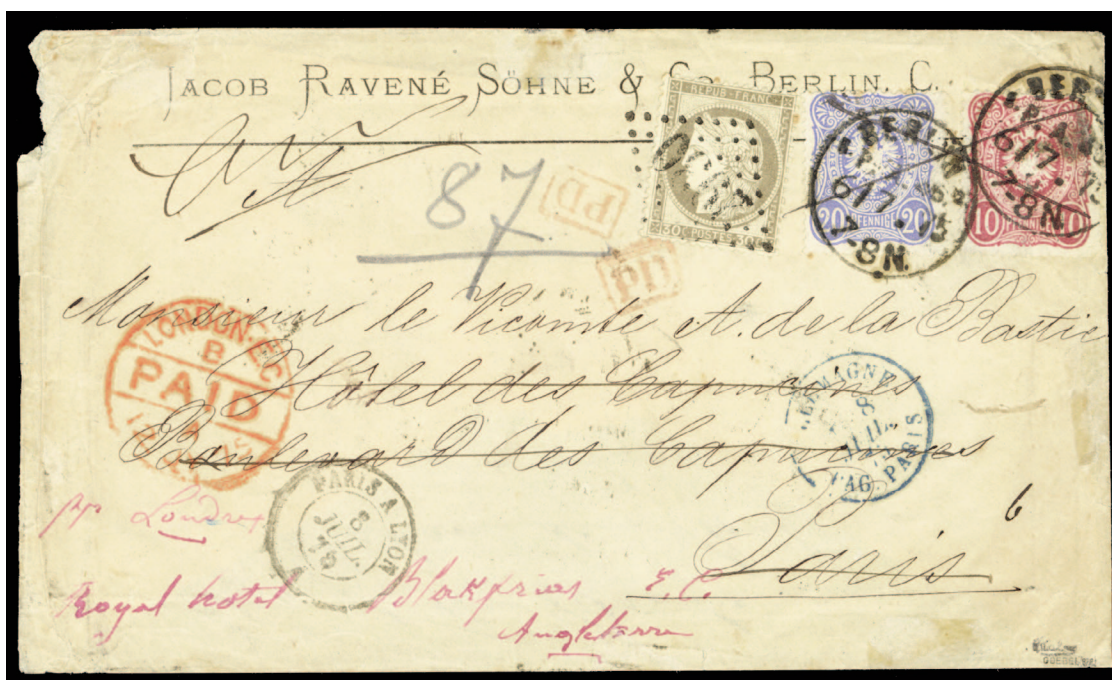 JACOB RAVENÉ SÖHNE & Co. BERLIN. C.
87
PD
PD
REPUB. FRANC.
30 c POSTES 30 c
20 PFENNIGE 20
10 PFENNIGE 10
BERLIN
6/7 75
7-8N.
BER
6/7
7-8N.
Monsieur le Vicomte A. de la Bastie
Hôtel des Capucines
Boulevard des Capucines
Paris
LONDON-E.C
B
PAID
ALLEMAGNE
8
JUIL.
AG. PARIS
PARIS A LYON
8
JUIL.
75
6
pp Londres
Royal hotel Blakfrias E. C.
Angleterre